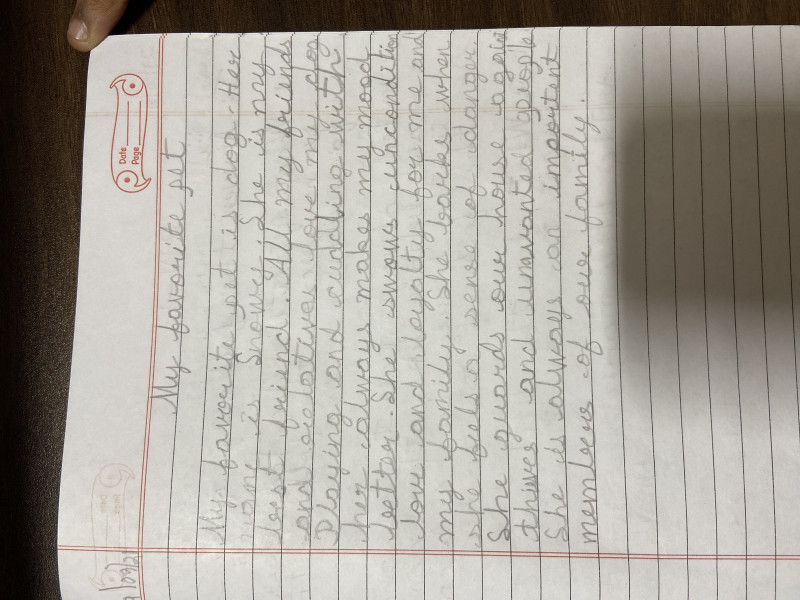 Date
Page
My favourite pet
My favourite pet is dog. Her
name is Snowy. She is my
best friend. All my friends
and relatives love my dog
Playing and cuddling with
her always makes my mood
better. She shows unconditional
love and loyalty for me and
my family. She barks when
she feels a sense of danger.
She guards our house again
thieves and unwanted people
She is always an important
members of our family.